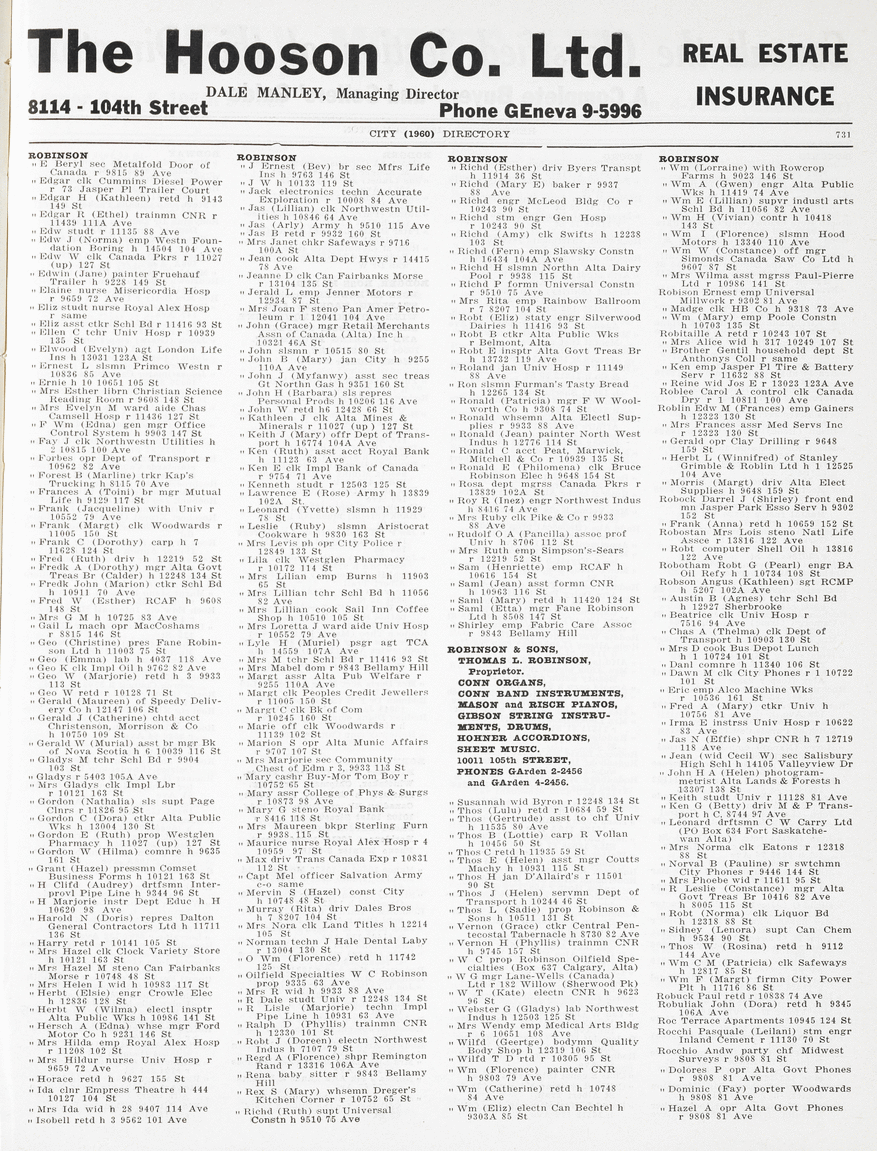 The Hooson Co. Ltd.
REAL ESTATE
INSURANCE
DALE MANLEY, Managing Director
8114 - 104th Street
Phone GEneva 9-5996
CITY (1960) DIRECTORY
731
ROBINSON
" E Beryl sec Metalfold Door of
Canada r 9815 89 Ave
" Edgar clk Cummins Diesel Power
r 73 Jasper Pl Trailer Court
" Edgar H (Kathleen) retd h 9143
149 St
" Edgar R (Ethel) trainmn CNR r
11439 111A Ave
" Edw studt r 11135 88 Ave
" Edw J (Norma) emp Westn Foun-
dation Boring h 14504 104 Ave
" Edw W clk Canada Pkrs r 11027
(up) 127 St
" Edwin (Jane) painter Fruehauf
Trailer h 9228 149 St
" Elaine nurse Misericordia Hosp
r 9659 72 Ave
" Eliz studt nurse Royal Alex Hosp
r same
" Eliz asst ctkr Schl Bd r 11416 93 St
" Ellen C tchr Univ Hosp r 10939
135 St
" Elwood (Evelyn) agt London Life
Ins h 13031 123A St
" Ernest L slsmn Primco Westn r
10836 85 Ave
" Ernie h 10 10651 105 St
" Mrs Esther librn Christian Science
Reading Room r 9608 148 St
" Mrs Evelyn M ward aide Chas
Camsell Hosp r 11436 127 St
" F Wm (Edna) gen mgr Office
Control System h 9903 147 St
" Fay J clk Northwestn Utilities h
2 10815 100 Ave
" Forbes opr Dept of Transport r
10962 82 Ave
" Forest B (Marline) trkr r Kap's
Trucking h 8115 70 Ave
" Frances A (Toini) br mgr Mutual
Life h 9129 117 St
" Frank (Jacqueline) with Univ r
10552 79 Ave
" Frank (Margt) clk Woodwards r
11005 150 St
" Frank C (Dorothy) carp h 7
11628 124 St
" Fred (Ruth) driv h 12219 52 St
" Fredk A (Dorothy) mgr Alta Govt
Treas Br (Calder) h 12248 134 St
" Fredk John (Marion) ctkr Schl Bd
h 10911 70 Ave
" Fred W (Esther) RCAF h 9608
148 St
" Mrs G M h 10725 83 Ave
" Gail L mach opr MacCoshams
r 8815 146 St
" Geo (Christine) pres Fane Robin-
son Ltd h 11003 75 St
" Geo (Emma) lab h 4037 118 Ave
" Geo K clk Impl Oil h 9762 82 Ave
" Geo W (Marjorie) retd h 3 9933
113 St
" Geo W retd r 10128 71 St
" Gerald (Maureen) of Speedy Deliv-
ery Co h 12147 106 St
" Gerald J (Catherine) chtd acct
Christenson, Morrison & Co
h 10750 109 St
" Gerald W (Murial) asst br mgr Bk
of Nova Scotia h 6 10039 116 St
" Gladys M tchr Schl Bd r 9904
103 St
" Gladys r 5403 105A Ave
" Mrs Gladys clk Impl Lbr
r 10121 163 St
" Gordon (Nathalia) sls supt Page
Clnrs r 11826 95 St
" Gordon C (Dora) ctkr Alta Public
Wks h 13004 130 St
" Gordon E (Ruth) prop Westglen
Pharmacy h 11027 (up) 127 St
" Gordon W (Hilma) comnre h 9635
161 St
" Grant (Hazel) pressmn Comset
Business Forms h 10121 163 St
" H Clifd (Audrey) drtfsmn Inter-
provl Pipe Line h 9344 96 St
" H Marjorie instr Dept Educ h H
10620 98 Ave
" Harold N (Doris) repres Dalton
General Contractors Ltd h 11711
136 St
" Harry retd r 10141 105 St
" Mrs Hazel clk Clock Variety Store
h 10121 163 St
" Mrs Hazel M steno Can Fairbanks
Morse r 10748 48 St
" Mrs Helen I wid h 10983 117 St
" Herbt (Elsie) engr Crowle Elec
h 12836 128 St
" Herbt W (Wilma) electl insptr
Alta Public Wks h 10986 141 St
" Hersch A (Edna) whse mgr Ford
Motor Co h 9231 146 St
" Mrs Hilda emp Royal Alex Hosp
r 11208 102 St
" Mrs Hildur nurse Univ Hosp r
9659 72 Ave
" Horace retd h 9627 155 St
" Ida clnr Empress Theatre h 444
10127 104 St
" Mrs Ida wid h 28 9407 114 Ave
" Isobell retd h 3 9562 101 Ave
ROBINSON
" J Ernest (Bev) br sec Mfrs Life
Ins h 9763 146 St
" J W h 10133 119 St
" Jack electronics techn Accurate
Exploration r 10008 84 Ave
" Jas (Lillian) clk Northwestn Util-
ities h 10846 64 Ave
" Jas (Arly) Army h 9510 115 Ave
" Jas B retd r 9932 160 St
" Mrs Janet chkr Safeways r 9716
100A St
" Jean cook Alta Dept Hwys r 14415
78 Ave
" Jeanne D clk Can Fairbanks Morse
r 13104 135 St
" Jerald L emp Jenner Motors r
12934 87 St
" Mrs Joan F steno Pan Amer Petro-
leum r 1 12041 104 Ave
" John (Grace) mgr Retail Merchants
Assn of Canada (Alta) Inc h
10321 46A St
" John slsmn r 10515 80 St
" John B (Mary) jan City h 9255
110A Ave
" John J (Myfanwy) asst sec treas
Gt Northn Gas h 9351 160 St
" John H (Barbara) sls repres
Personal Prods h 10206 116 Ave
" John W retd h6 12428 66 St
" Kathleen J clk Alta Mines &
Minerals r 11027 (up ) 127 St
" Keith J (Mary) offr Dept of Trans-
port h 16774 104A Ave
" Ken (Ruth) asst acct Royal Bank
h 11123 63 Ave
" Ken E clk Impl Bank of Canada
r 9754 71 Ave
" Kenneth studt r 12503 125 St
" Lawrence E (Rose) Army h 13839
102A St.
" Leonard (Yvette) slsmn h 11929
78 St
" Leslie (Ruby) slsmn Aristocrat
Cookware h 9830 163 St
" Mrs Levis ph opr City Police r
12849 133 St
" Lila clk Westglen Pharmacy
r 10172 114 St
" Mrs Lilian emp Burns h 11903
65 St
" Mrs Lillian tchr Schl Bd h 11056
82 Ave
" Mrs Lillian cook Sail Inn Coffee
Shop h 10510 105 St
" Mrs Loretta J ward aide Univ Hosp
r 10552 79 Ave
" Lyle H (Muriel) psgr agt TCA
h 14559 107A Ave
" Mrs M tchr Schl Bd r 11416 93 St
" Mrs Mabel dom r 9843 Bellamy Hill
" Margt assr Alta Pub Welfare r
9255 110A Ave
" Margt clk Peoples Credit Jewellers
r 11005 150 St
" Margt C clk Bk of Com
r 10245 160 St
" Marie off clk Woodwards r
11139 102 St
" Marion S opr Alta Munic Affairs
r 9707 107 St
" Mrs Marjorie sec Community
Chest of Edm r 3, 9933 113 St
" Mary cashr Buy-Mor Tom Boy r
10752 65 St
" Mary assr College of Phys & Surgs
r 10873 98 Ave
" Mary G steno Royal Bank
r 8416 118 St
" Mrs Maureen bkpr Sterling Furn
r 9938 115 St
" Maurice nurse Royal Alex Hosp r 4
10959 97 St
" Max driv Trans Canada Exp r 10831
112 St
" Capt Mel officer Salvation Army
c-o same
" Mervin S (Hazel) const City
h 10748 48 St
" Murray (Rita) driv Dales Bros
h 7 8207 104 St
" Mrs Nora clk Land Titles h 12214
105 St
" Norman techn J Hale Dental Laby
r 13004 130 St
" O Wm (Florence) retd h 11742
125 St
" Oilfield Specialties W C Robinson
prop 9335 63 Ave
" Mrs R wid h 9933 88 Ave
" R Dale studt Univ r 12248 134 St
" R Lisle (Marjorie) techn Impl
Pipe Line h 10931 63 Ave
" Ralph D (Phyllis) trainmn CNR
h 12330 101 St
" Robt J (Doreen) electn Northwest
Indus h 7107 79 St
" Regd A (Florence) shpr Remington
Rand r 13316 106A Ave
" Rena baby sitter r 9843 Bellamy
Hill
" Rex S (Mary) whsemn Dreger's
Kitchen Corner r 10752 65 St
" Richd (Ruth) supt Universal
Constn h 9510 75 Ave
ROBINSON
" Richd (Esther) driv Byers Transpt
h 11914 36 St
" Richd (Mary E) baker r 9937
88 Ave
" Richd engr McLeod Bldg Co r
10243 90 St
" Richd stm engr Gen Hosp
r 10243 90 St
" Richd (Amy) clk Swifts h 12238
103 St
" Richd (Fern) emp Slawsky Constn
h 16434 104A Ave
" Richd H slsmn Northn Alta Dairy
Pool r 9938 115 St
" Richd P formn Universal Constn
r 9510 75 Ave
" Mrs Rita emp Rainbow Ballroom
r 7 8207 104 St
" Robt (Eliz) staty engr Silverwood
Dairies h 11416 93 St
" Robt B ctkr Alta Public Wks
r Belmont, Alta
" Robt E insptr Alta Govt Treas Br
h 13732 119 Ave
" Roland jan Univ Hosp r 11149
88 Ave
" Ron slsmn Furman's Tasty Bread
h 12265 134 St
" Ronald (Patricia) mgr F W Wool-
worth Co h 9308 74 St
" Ronald whsemn Alta Electl Sup-
plies r 9933 88 Ave
" Ronald (Jean) painter North West
Indus h 12776 114 St
" Ronald C acct Peat, Marwick,
Mitchell & Co r 10939 135 St
" Ronald E (Philomena) clk Bruce
Robinson Elec h 9648 154 St
" Rosa dept mgrss Canada Pkrs r
13839 102A St
" Roy R (Inez) engr Northwest Indus
h 8416 74 Ave
" Mrs Ruby clk Pike & Co r 9933
88 Ave
" Rudolf O A (Pancilla) assoc prof
Univ h 8706 112 St
" Mrs Ruth emp Simpson's-Sears
r 12219 52 St
" Sam (Henriette) emp RCAF h
10616 154 St
" Saml (Jean) asst formn CNR
h 10963 116 St
" Saml (Mary) retd h 11420 124 St
" Saml (Etta) mgr Fane Robinson
Ltd h 8508 147 St
" Shirley emp Fabric Care Assoc
r 9843 Bellamy Hill
ROBINSON & SONS,
THOMAS L. ROBINSON,
Proprietor.
CONN ORGANS,
CONN BAND INSTRUMENTS,
MASON and RISCH PIANOS,
GIBSON STRING INSTRU-
MENTS, DRUMS,
HOHNER ACCORDIONS,
SHEET MUSIC.
10011 105th STREET,
PHONES GArden 2-2456
and GArden 4-2456.
" Susannah wid Byron r 12248 134 St
" Thos (Lulu) retd r 10684 59 St
" Thos (Gertrude) asst to chf Univ
h 11535 80 Ave
" Thos B (Lottie) carp R Vollan
h 10456 50 St
" Thos C retd h 11935 59 St
" Thos E (Helen) asst mgr Coutts
Machy h 10931 115 St
" Thos H jan D'Allaird's r 11501
90 St
" Thos J (Helen) servmn Dept of
Transport h 10244 46 St
" Thos L (Sadie) prop Robinson &
Sons h 10511 131 St
" Vernon (Grace) ctkr Central Pen-
tecostal Tabernacle h 8730 82 Ave
" Vernon H (Phyllis) trainmn CNR
h 9745 157 St
" W C prop Robinson Oilfield Spe-
cialties (Box 637 Calgary, Alta)
" W G mgr Lane-Wells (Canada)
Ltd r 182 Willow (Sherwood Pk)
" W T (Kate) electn CNR h 9623
96 St
" Webster G (Gladys) lab Northwest
Indus h 12503 125 St
" Mrs Wendy emp Medical Arts Bldg
r 6 10651 108 Ave
" Wilfd (Geertge) bodymn Quality
Body Shop h 12319 106 St
" Wilfd T D rtd r 10305 95 St
" Wm (Florence) painter CNR
h 9803 79 Ave
" Wm (Catherine) retd h 10748
84 Ave
" Wm (Eliz) electn Can Bechtel h
9303A 85 St
ROBINSON
" Wm (Lorraine) with Rowcrop
Farms h 9023 146 St
" Wm A (Gwen) engr Alta Public
Wks h 11419 74 Ave
" Wm E (Lillian) supvr industl arts
Schl Bd h 11056 82 Ave
" Wm H (Vivian) contr h 10418
143 St
" Wm I (Florence) slsmn Hood
Motors h 13340 110 Ave
" Wm W (Constance) off mgr
Simonds Canada Saw Co Ltd h
9607 87 St
" Mrs Wilma asst mgrss Paul-Pierre
Ltd r 10986 141 St
Robison Ernest emp Universal
Millwork r 9302 81 Ave
" Madge clk HB Co h 9318 73 Ave
" Wm (Mary) emp Poole Constn
h 10703 135 St
Robitaille A retd r 10243 107 St
" Mrs Alice wid h 317 10249 107 St
" Brother Gentil household dept St
Anthonys Coll r same
" Ken emp Jasper Pl Tire & Battery
Serv r 11632 88 St
" Reine wid Jos E r 13023 123A Ave
Roblee Carol A control clk Canada
Dry r 10811 10 Ave
Roblin Edw M (Frances) emp Gainers
h 12323 130 St
" Mrs Frances assr Med Servs Inc
r 12323 130 St
" Gerald opr Clay Drilling r 9648
159 St
" Herbt L (Winnifred) of Stanley
Grimble & Roblin Ltd h 1 12525
104 Ave
" Morris (Margt) driv Alta Elect
Supplies h 9648 159 St
Robock Darrel J (Shirley) front end
mn Jasper Park Esso Serv h 9302
152 St
" Frank (Anna) retd h 10659 152 St
Robostan Mrs Lois steno Natl Life
Assce r 13816 122 Ave
" Robt computer Shell Oil h 13816
122 Ave
Robotham Robt G (Pearl) engr BA
Oil Refy h 1 10734 108 St
Robson Angus (Kathleen) sgt RCMP
h 5207 102A Ave
" Austin B (Agnes) tchr Schl Bd
h 12927 Sherbrooke
" Beatrice clk Univ Hosp r
7516 94 Ave
" Chas A (Thelma) clk Dept of
Transport h 10903 130 St
" Mrs D cook Bus Depot Lunch
h 1 10724 101 St
" Danl comnre h 11340 106 St
" Dawn M clk City Phones r 1 10722
101 St
" Eric emp Alco Machine Wks
r 10536 161 St
" Fred A (Mary) ctkr Univ h
10756 81 Ave
" Irma E instrss Univ Hosp r 10622
83 Ave
" Jas N (Effie) shpr CNR h 7 12719
118 Ave
" Jean (wid Cecil W) sec Salisbury
High Schl h 14105 Valleyview Dr
" John H A (Helen) photogram-
metrist Alta Lands & Forests h
13307 138 St
" Keith studt Univ r 11128 81 Ave
" Ken G (Betty) driv M & P Trans-
port h C, 8744 97 Ave
" Leonard drftsmn C W Carry Ltd
(PO Box 634 Fort Saskatche-
wan Alta)
" Mrs Norma clk Eatons r 12318
88 St
" Norval B (Pauline) sr swtchmn
City Phones r 9446 144 St
" Mrs Phoebe wid r 11611 95 St
" R Leslie (Constance) mgr Alta
Govt Treas Br 10416 82 Ave
h 8005 115 St
" Robt (Norma) clk Liquor Bd
h 12318 88 St
" Sidney (Lenora) supt Can Chem
h 9534 90 St
" Thos W (Rosina) retd h 9112
144 Ave
" Wm C M (Patricia) clk Safeways
h 12817 85 St
" Wm F (Margt) firmn City Power
Plt h 11716 86 St
Robuck Paul retd r 10838 74 Ave
Robuliak John (Dora) retd h 9345
106A Ave
Roc Terrace Apartments 10945 124 St
Rocchi Pasquale (Leilani) stm engr
Inland Cement r 11130 70 St
Rocchio Andw party chf Midwest
Surveys r 9808 81 St
" Dolores P opr Alta Govt Phones
r 9808 81 Ave
" Dominic (Fay) porter Woodwards
h 9808 81 Ave
" Hazel A opr Alta Govt Phones
r 9808 81 Ave